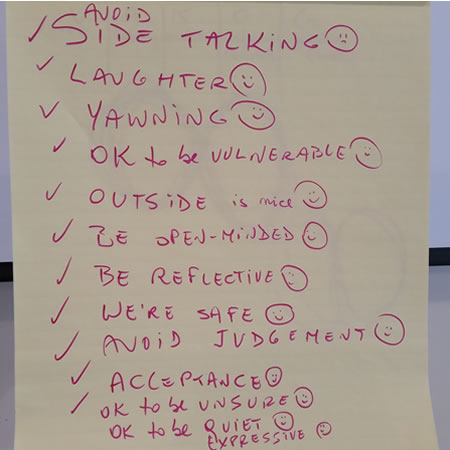 AVOID
✓ SIDE TALKING ☹
✓ LAUGHTER ☺
✓ YAWNING ☺
✓ OK to be VULNERABLE ☺
✓ OUTSIDE is nice ☺
✓ BE OPEN-MINDED ☺
✓ BE REFLECTIVE ☺
✓ WE'RE SAFE ☺
✓ AVOID JUDGEMENT ☺
✓ ACCEPTANCE ☺
✓ OK to be UNSURE ☺
OK to be QUIET ☺
EXPRESSIVE ☺